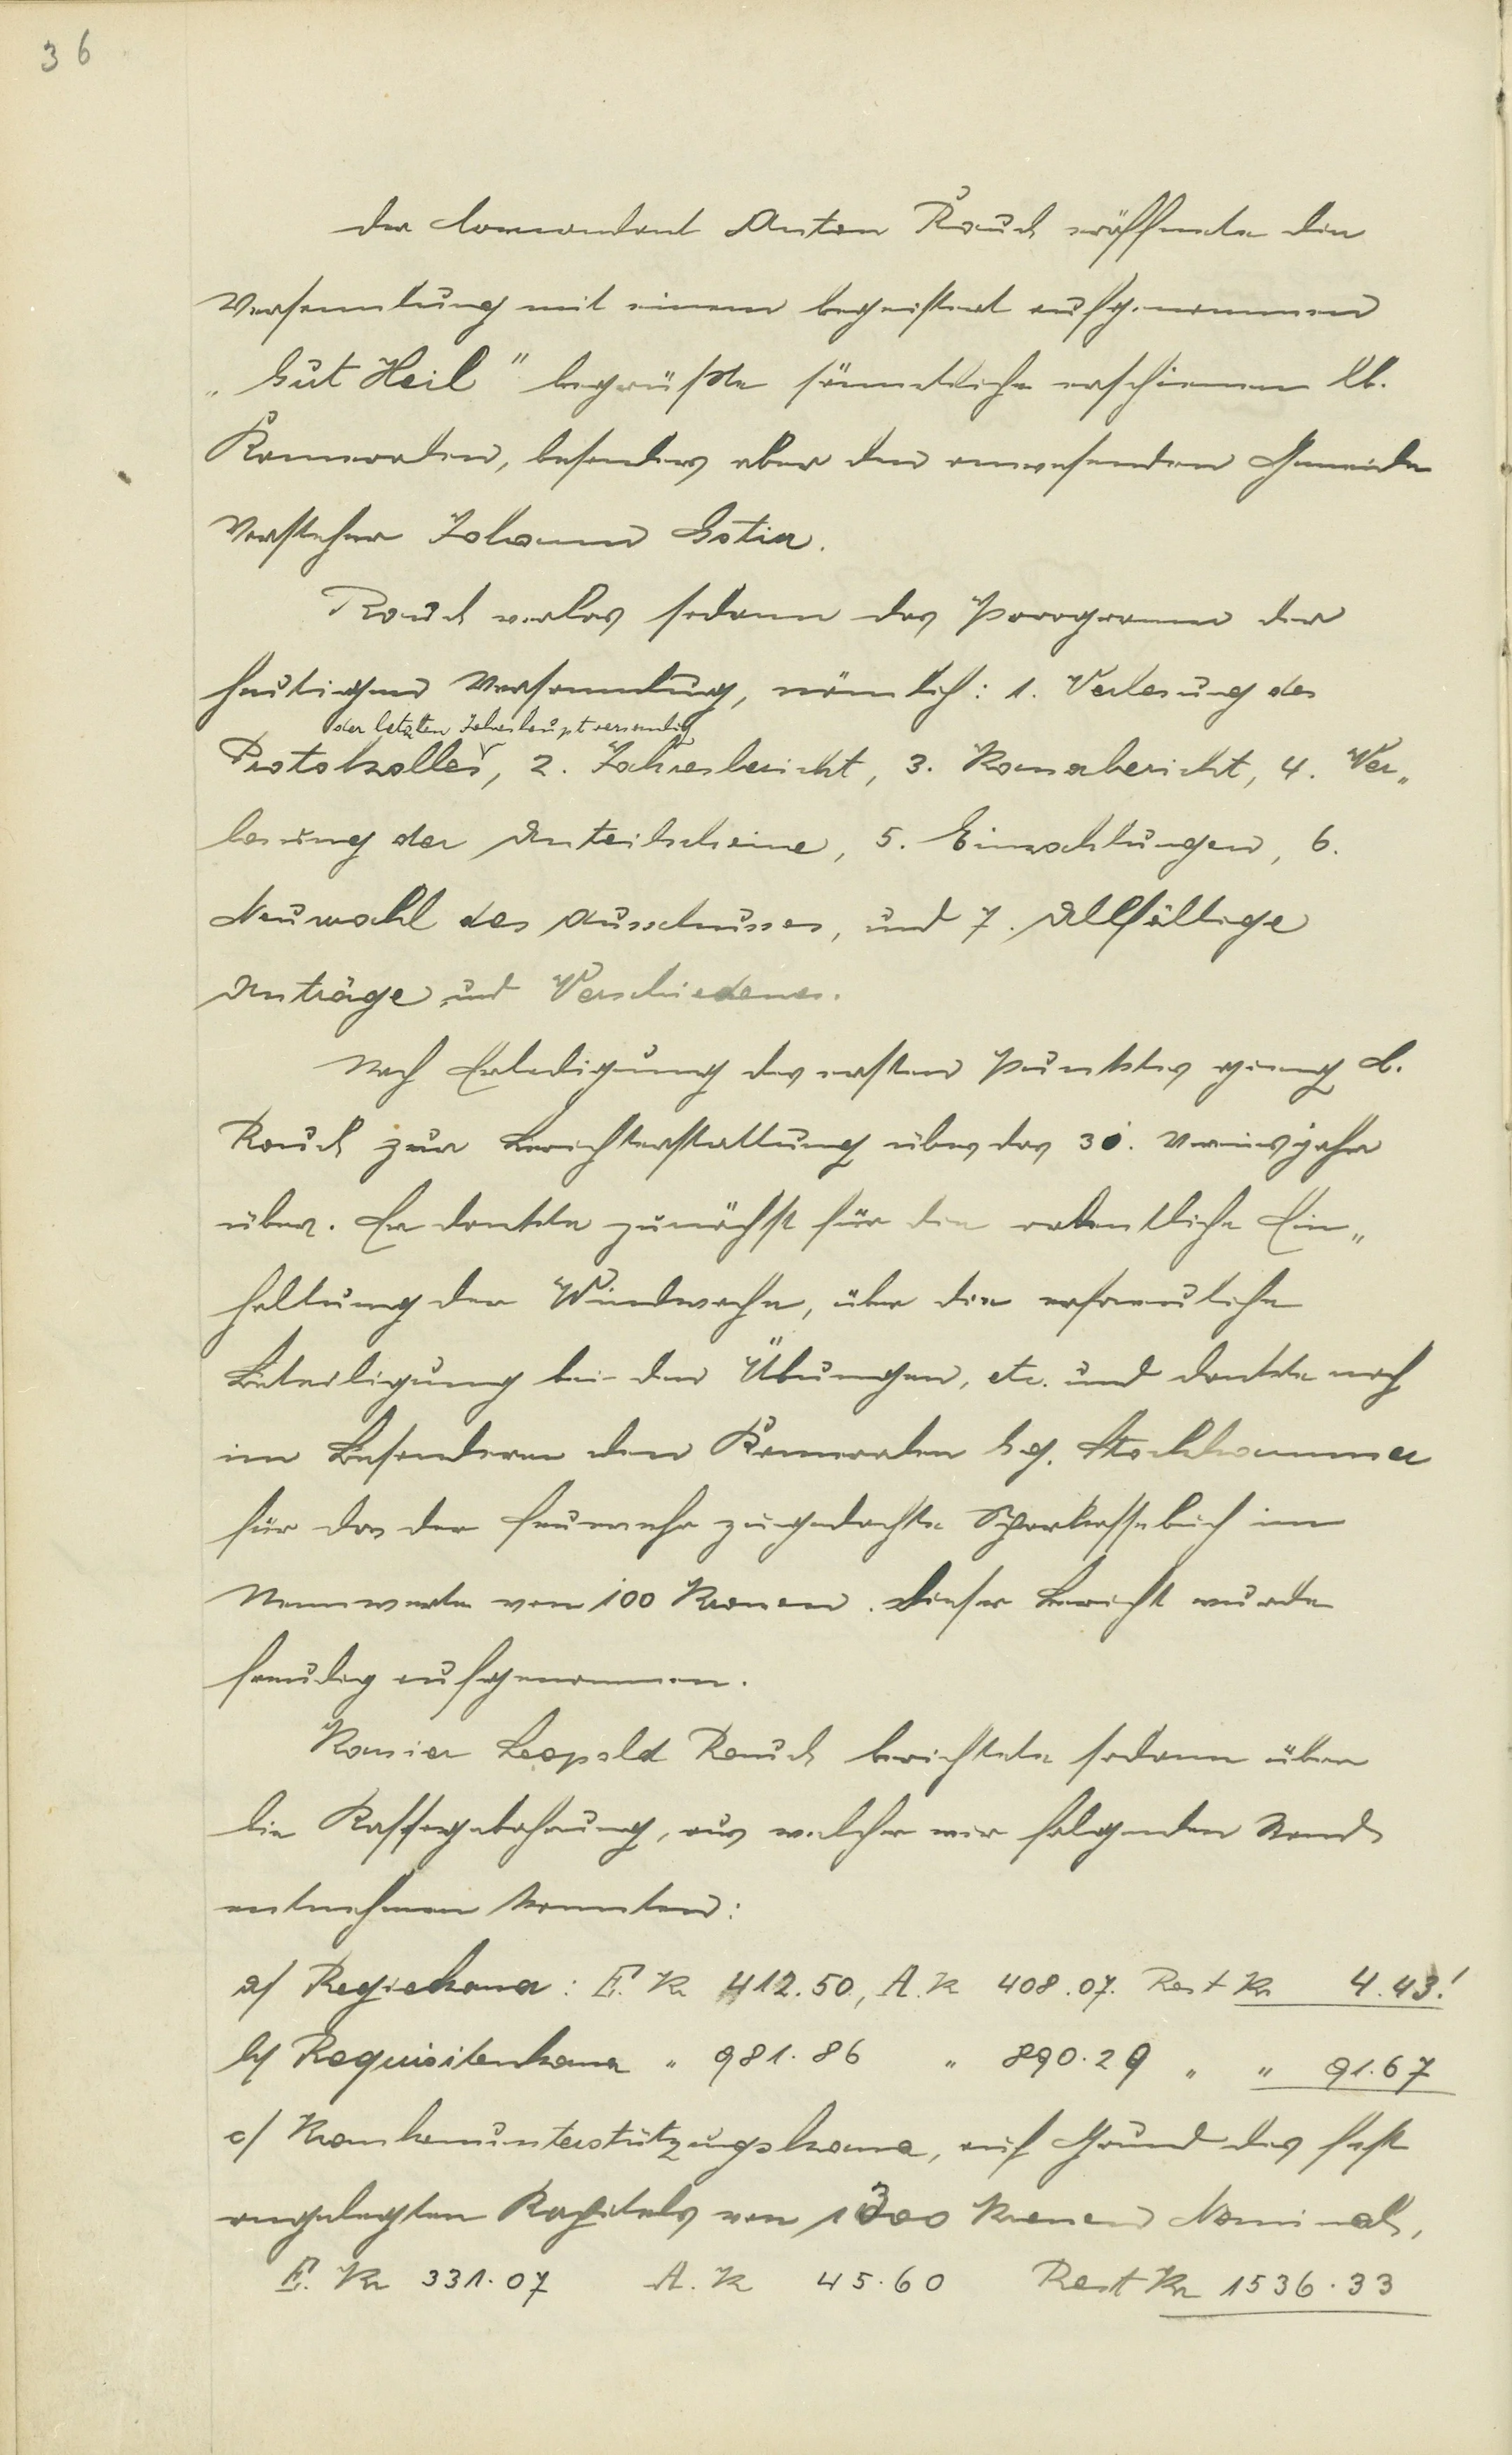 36
Der Commandant Anton Rauch eröffnete die
Versammlung mit einem begeistert aufgenommen
„Gut Heil" begrüßte sämmtliche erschienen lb.
Kammeraden, besonders aber den anwesenden Gemeinde
Vorsteher Johann
Rauch verlas sodann das Programm der
heutigen Versammlung, nämlich: 1. Verlesung des
der letzten Jahreshauptversamlg
Protokolles, 2. Jahresbericht, 3. Kassabericht, 4. Ver„
lesung der Anteilscheine, 5. Einzahlungen, 6.
Neuwahl des Ausschusses, und 7. Allfällige
Anträge und Verschiedenes.
Nach Erledigung des ersten Punktes gieng C.
Rauch zur Berichterstattung über das 30. Vereinsjahr
über. Er dankte zunächst für die ordentliche Ein„
haltung der Windwache, über die erfreuliche
Beteiligung bei den Übungen, etc. und dankte noch
im Besonderen den Kammeraden Gg. Stockhammer
für das der Feuerwehr zugedachte Sparkassebuch im
Nennwerte von 100 Kronen. Dieser Bericht wurde
freudig aufgenommen.
Kassier Leopold Rauch berichtete sodann über
die Kassegebahrung, aus welcher wir folgenden Stand
entnehmen konnten:
a/ Regiekassa: E. Kr 412.50, A. K 408.07. Rest Kr 4.43!
b/ Requisitenkassa " 981.86 " 890.29 " " 91.67
c/ Krankenunterstützungskassa, auf Grund des fest
angelegten Kapitals von 1300 Kronen Nominal,
E. Kr 331.07 A. K 45.60 Rest Kr 1536.33